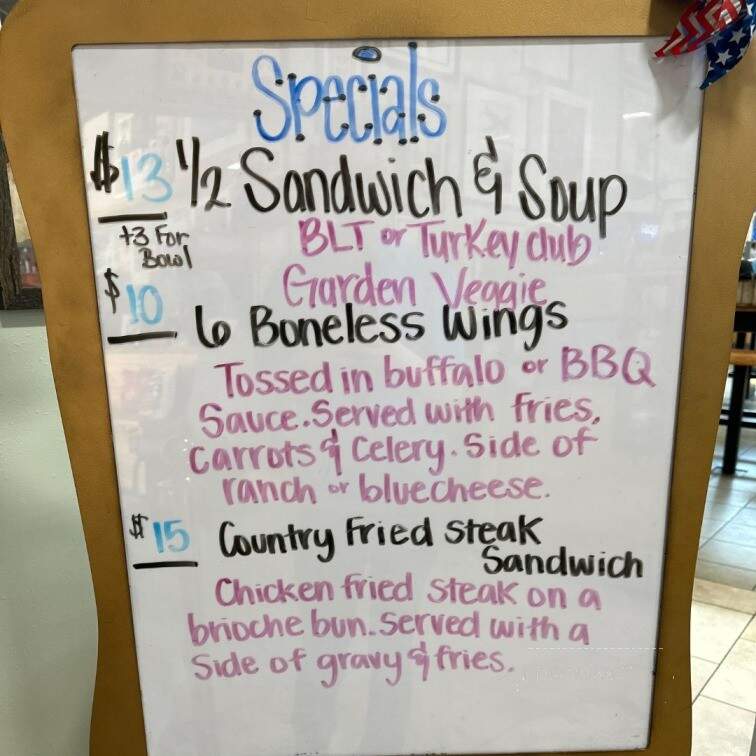 Specials
$13 1/2 Sandwich & Soup
+3 For
Bowl
BLT or Turkey club
Garden Veggie
$10 6 Boneless Wings
Tossed in buffalo or BBQ
Sauce. Served with fries,
carrots & Celery. Side of
ranch or bluecheese.
$15 Country Fried Steak
Sandwich
Chicken fried steak on a
brioche bun. Served with a
Side of gravy & fries.